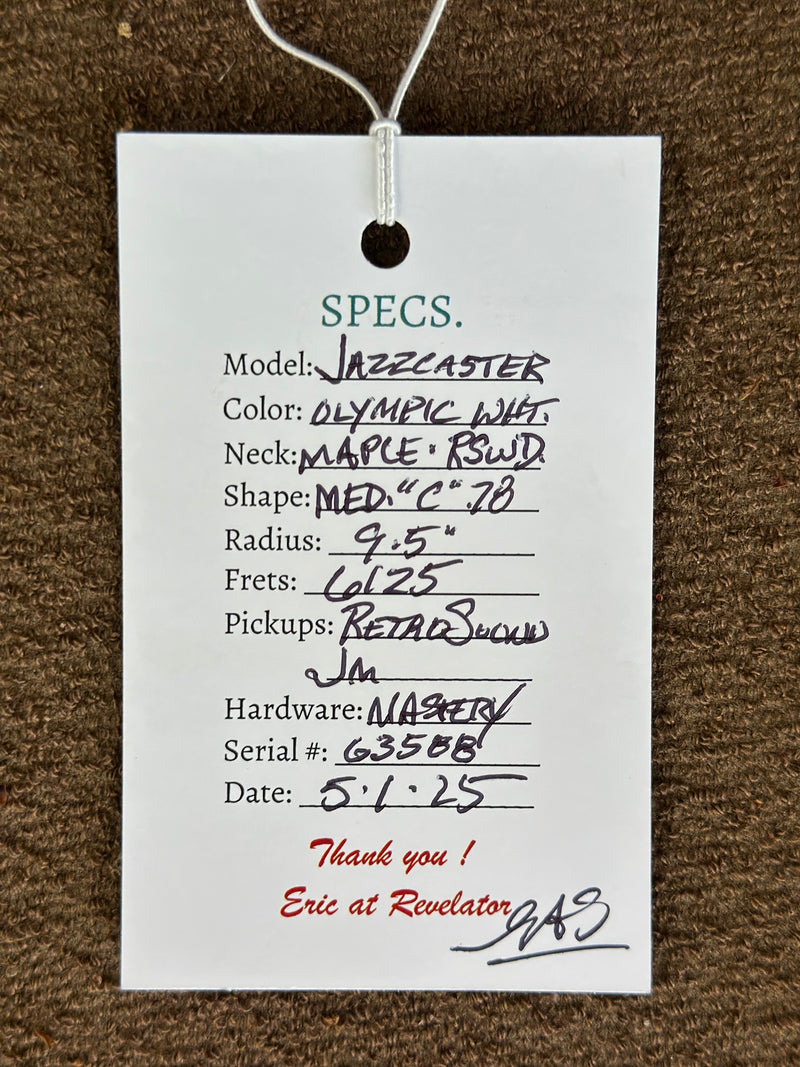 SPECS.
Model: JAZZCASTER
Color: OLYMPIC WHT.
Neck: MAPLE · RSWD.
Shape: MED. "C" .78
Radius: 9.5"
Frets: 6125
Pickups: RETRO
JM
Hardware: MASTERY
Serial #: 6358B
Date: 5·1·25
Thank you !
Eric at Revelator